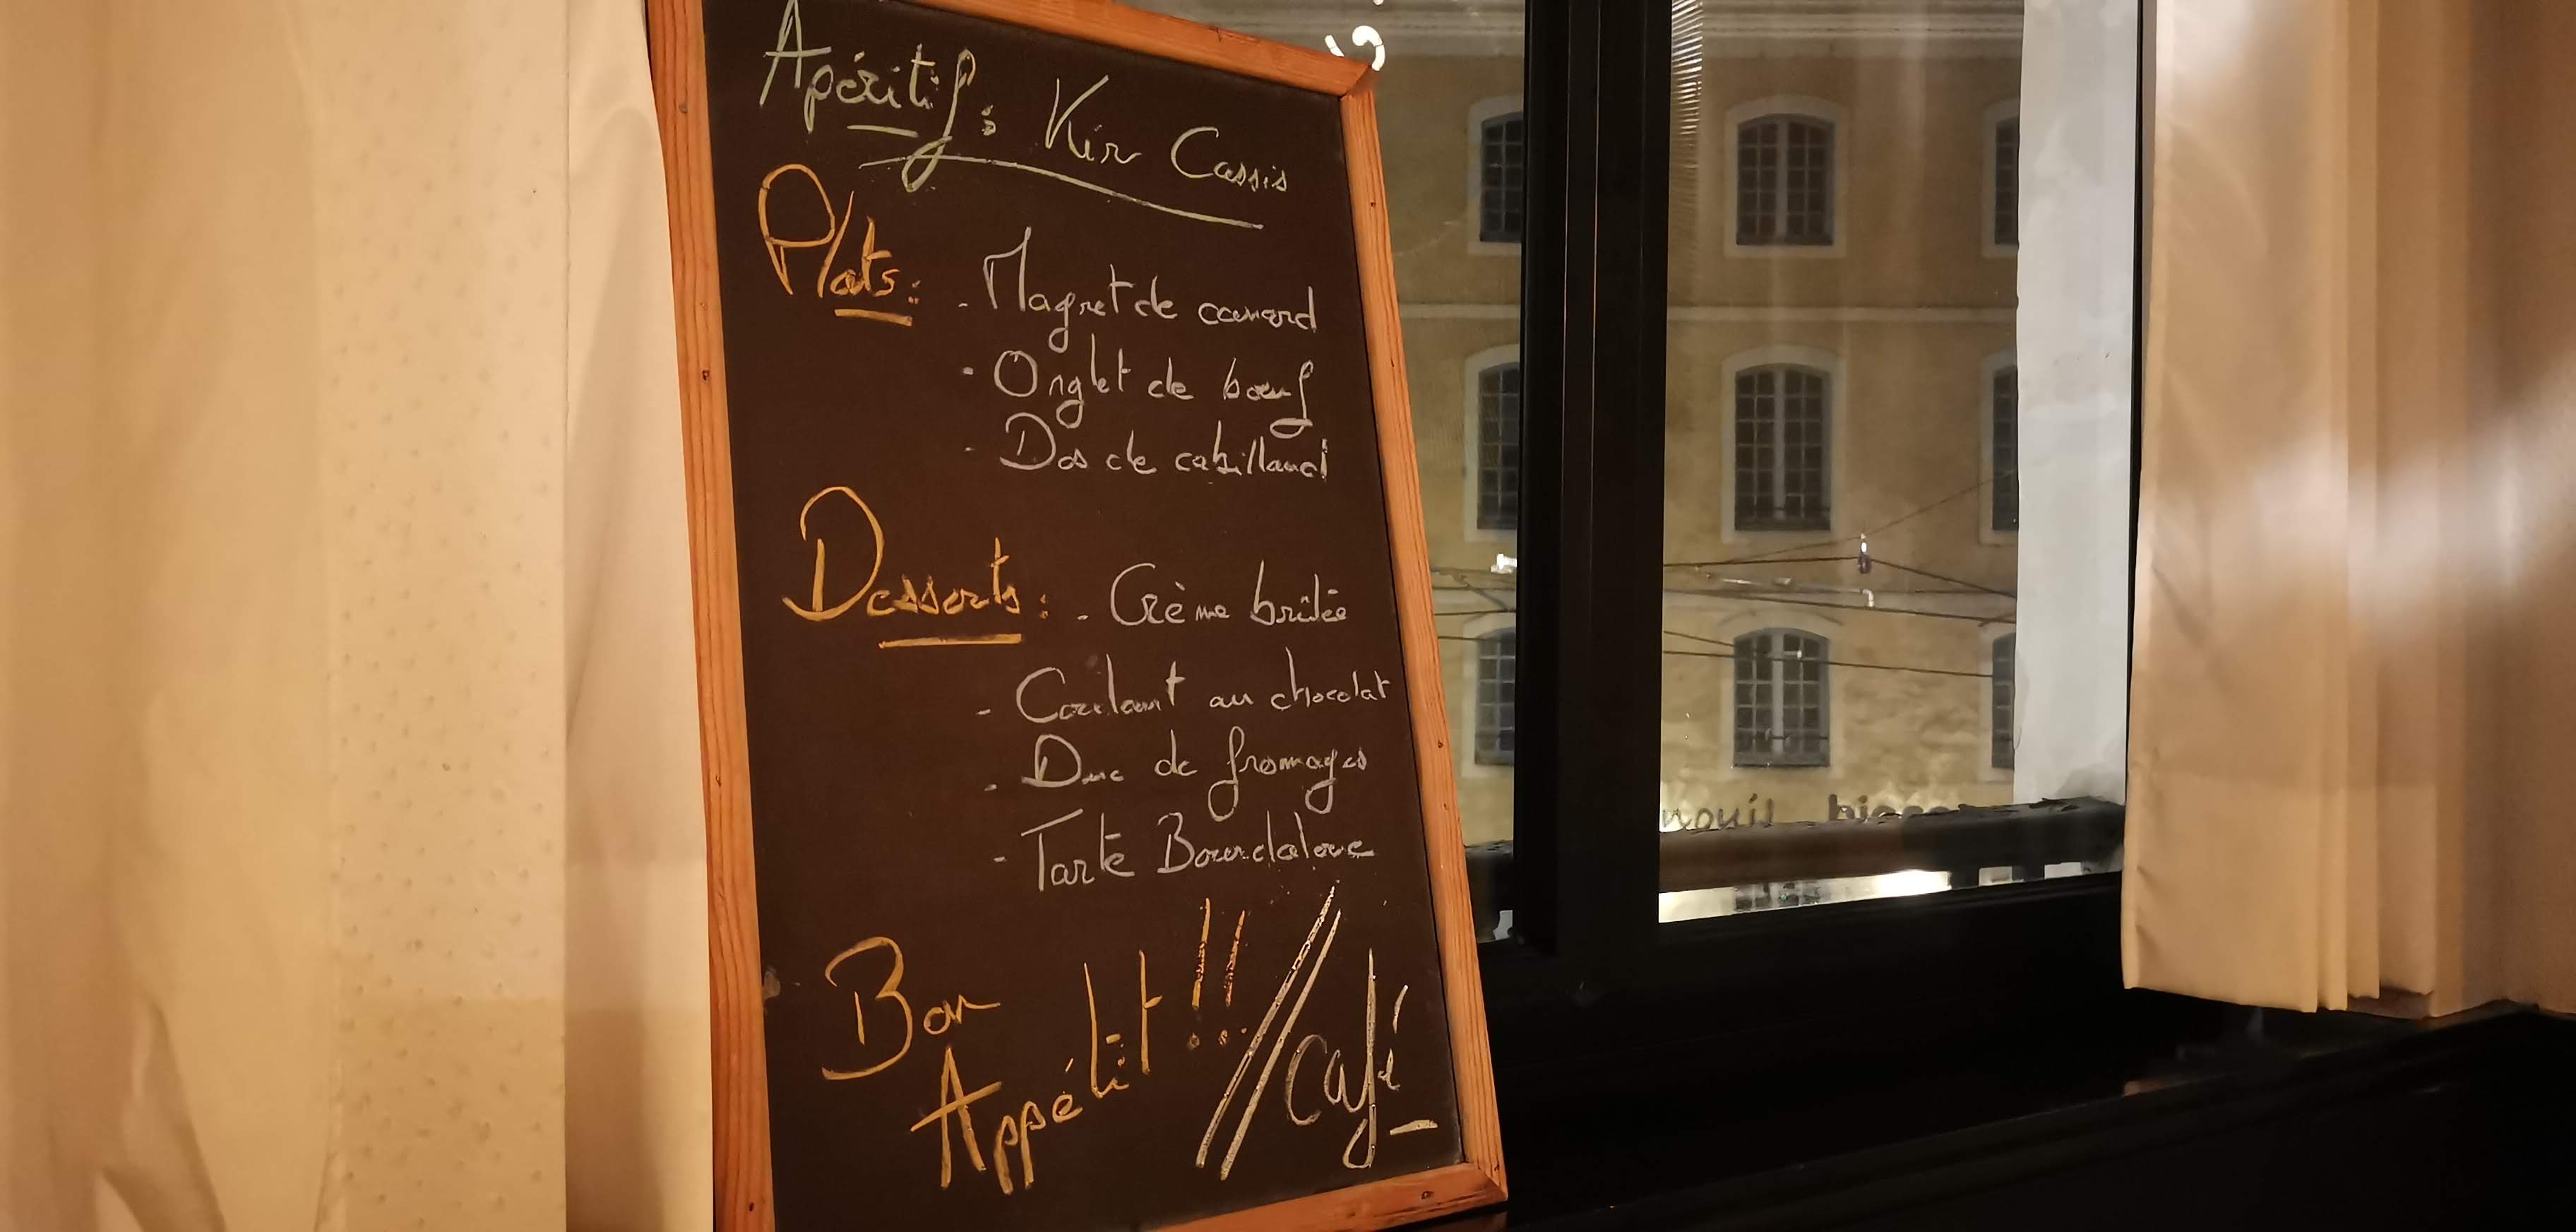 Apéritif : Kir Cassis
Plats :
- Magret de canard
- Onglet de bœuf
- Dos de cabillaud
Desserts : - Crème brûlée
- Coulant au chocolat
- Duc de fromages
- Tarte Bourdaloue
Bon
Appétit !! // Café